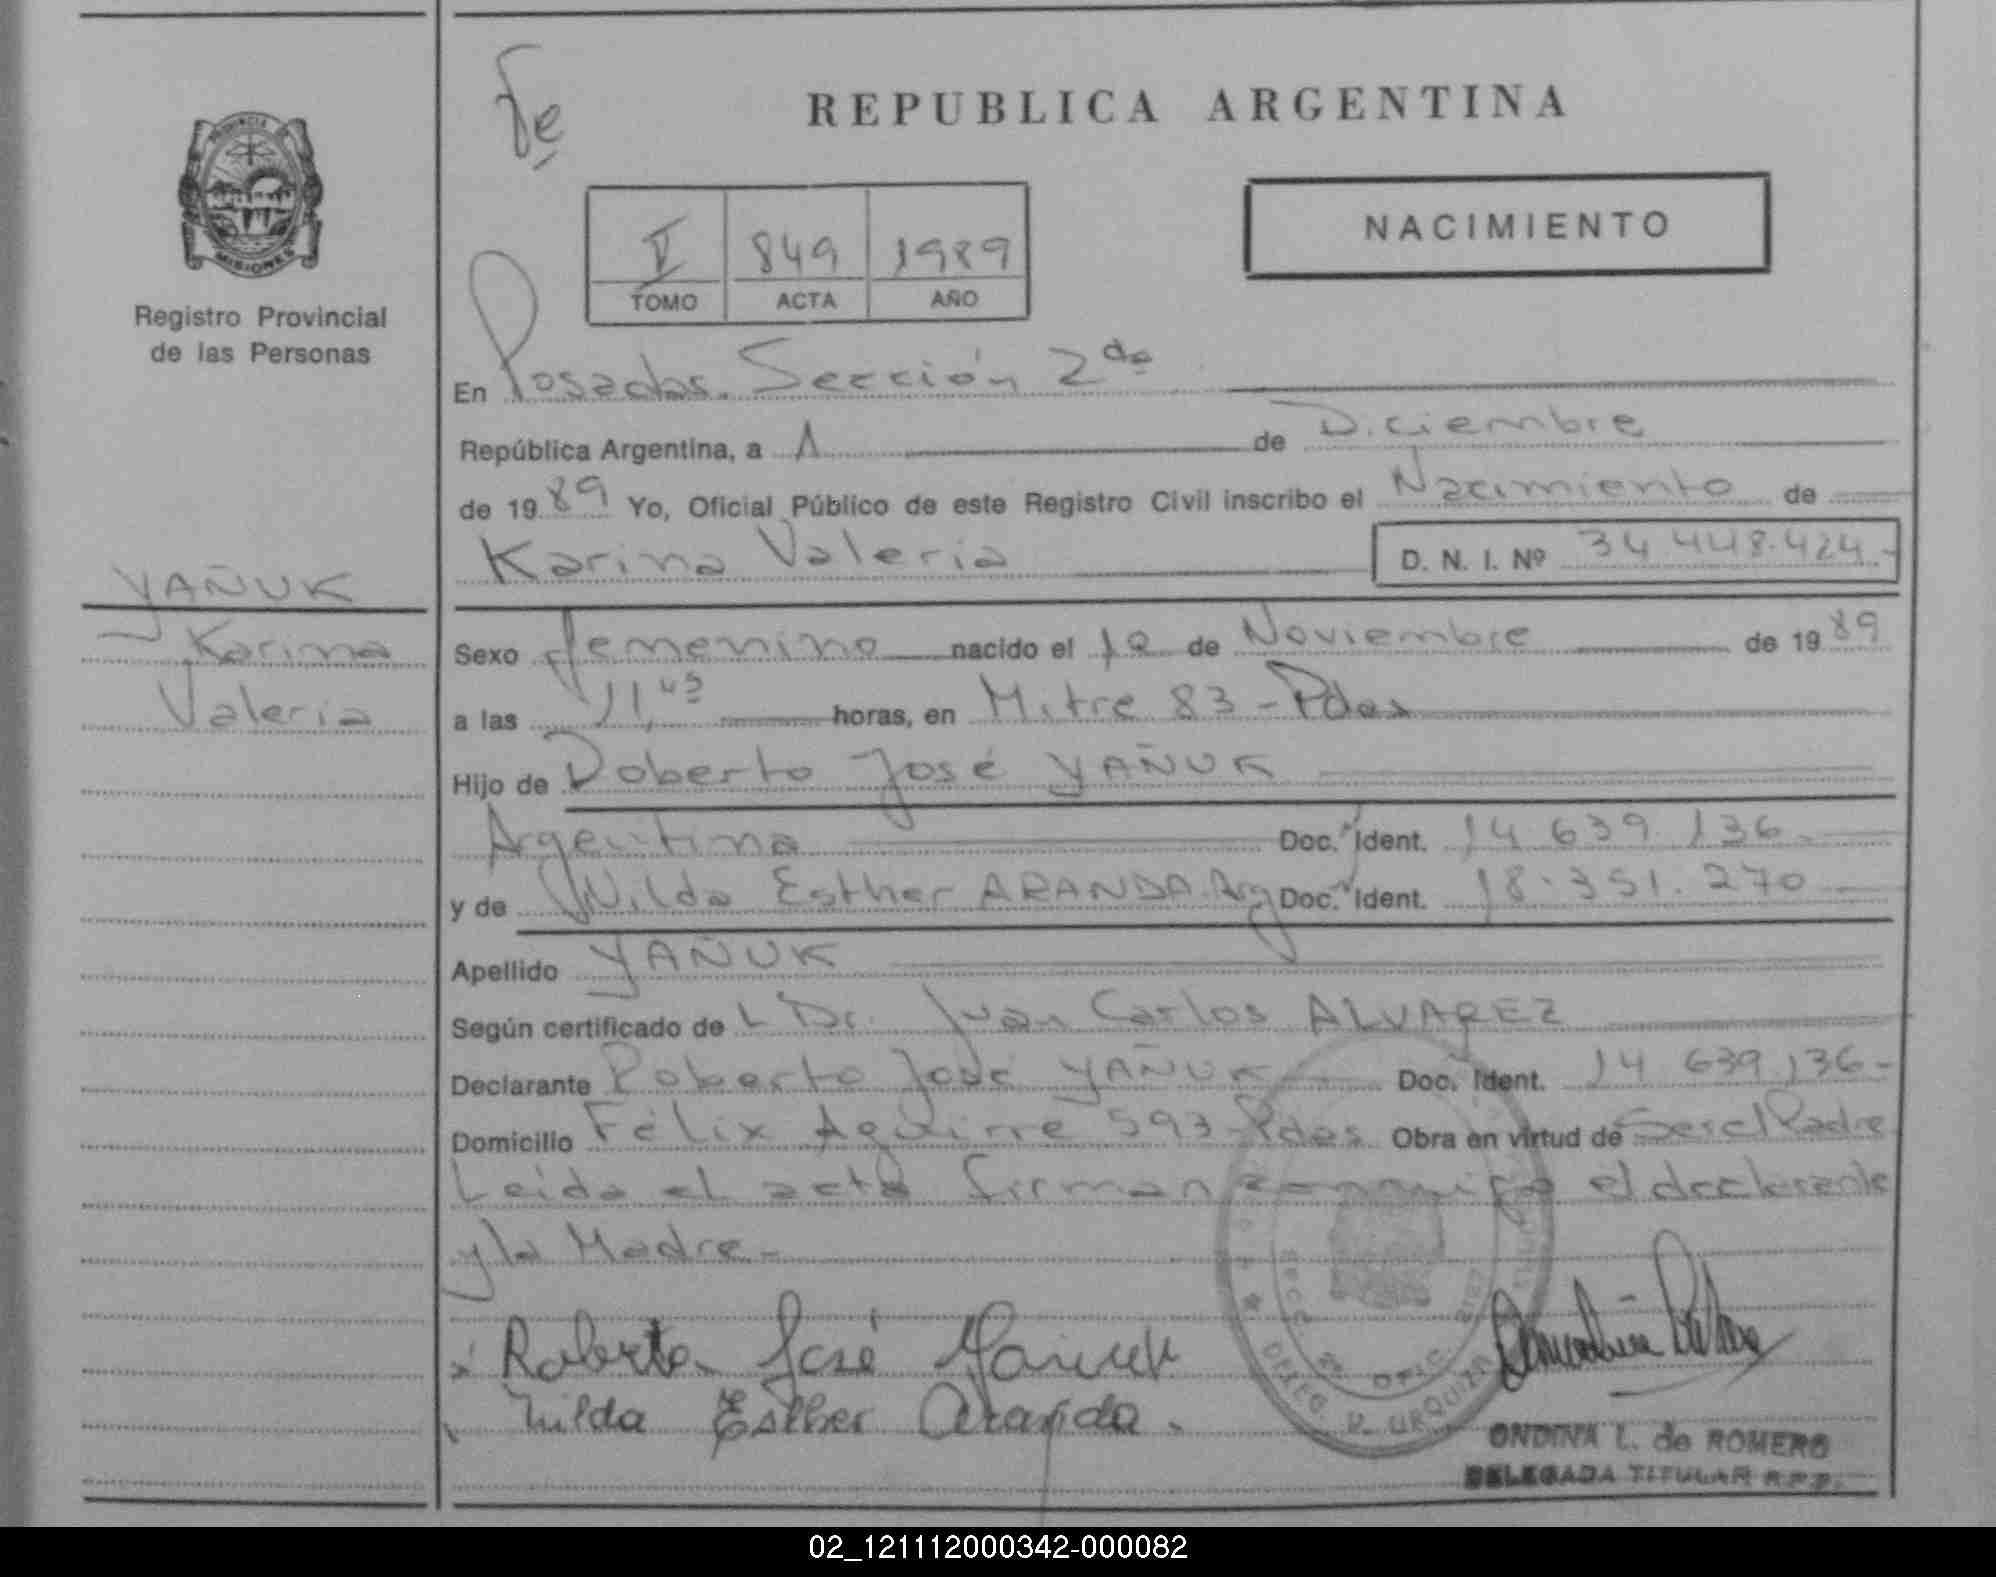 Fe
REPUBLICA ARGENTINA
NACIMIENTO
PROVINCIA DE
MISIONES
Registro Provincial
de las Personas
V 849 1989
TOMO ACTA AÑO
En Posadas. Sección 2da
República Argentina, a 1 de Diciembre
de 1989 Yo, Oficial Público de este Registro Civil inscribo el Nacimiento de
Karina Valeria D. N. I. Nº 34.448.424.-
YAÑUK
Karina
Valeria
Sexo femenino nacido el de Noviembre de 1989
a las 11,45 horas, en Mitre 83 - Pdas
Hijo de Roberto José YAÑUK
Argentina Doc. Ident. 14.639.136.-
y de Nilda Esther ARANDA. Arg Doc. Ident. 18.351.270
Apellido YAÑUK
Según certificado de L Dr. Juan Carlos ALVAREZ
Declarante Roberto José YAÑUK Doc. Ident. 14.639.136-
Domicilio Félix Aguirre 593-Pdas Obra en virtud de Ser el Padre
Leida el acta firman conmigo el declarante
y la Madre-
x Roberto José Yañuk
Nilda Esther Aranda.
ONDINA L. de ROMERO
DELEGADA TITULAR R.P.P.
02_121112000342-000082